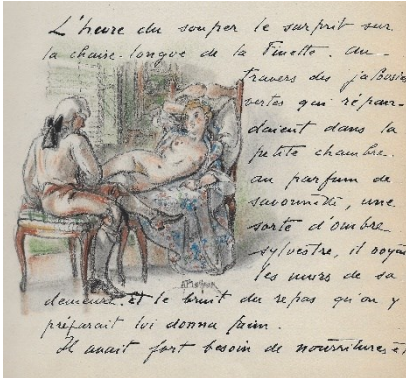 L'heure du souper le surprit sur
la chaise-longue de la Finette. Au-
travers des jalousies
vertes qui répan-
daient dans la
petite chambre.
au parfum de
savonnette, une
sorte d'ombre
sylvestre, il voyait
les murs de sa
demeure. et le bruit du repas qu'on y
préparait lui donna faim.
Il avait fort besoin de nourritures et